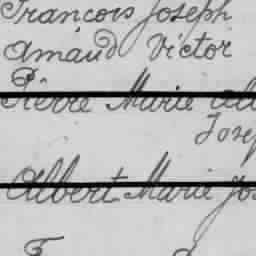 François Joseph
Amand Victor
Pierre Marie
Albert Marie